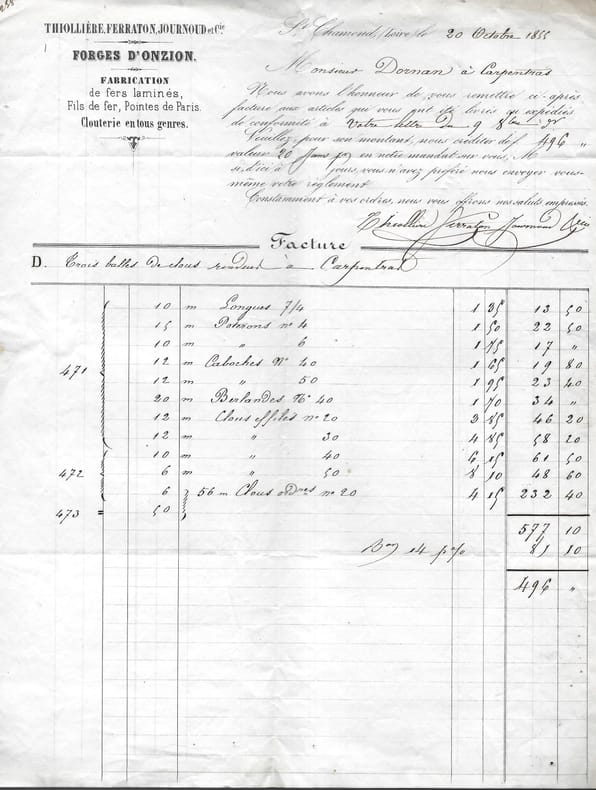 1855
THIOLLIÈRE, FERRATON, JOURNOUD et Cie
FORGES D'ONZION.
FABRICATION
de fers laminés,
Fils de fer, Pointes de Paris.
Clouterie en tous genres.
St Chamond, (Loire) le 20 Octobre 1855
Monsieur Dornan à Carpentras
Nous avons l'honneur de vous remettre ci-après
facture aux articles qui vous ont été livrés ou expédiés
de conformité à Votre lettre du 9 8bre
Veuillez, pour son montant, nous créditer de f 496 "
valeur 20 en notre mandat sur vous, M
si, d'ici à jours, vous n'avez préféré nous envoyer vous-
même votre règlement
Constamment à vos ordres, nous vous offrons nos saluts empressés.
Thiollière Ferraton Journoud & Cie
Facture
D. Trois balles de clous rendues à Carpentras
10 m Longues 7/4 1 35 13 50
15 m Potirons n° 4 1 50 22 50
10 m " 6 1 75 17 "
471 12 m Caboches N° 40 1 65 19 80
12 m " 50 1 95 23 40
20 m Berlandes N° 40 1 70 34 "
12 m Clous effilés n° 20 3 85 46 20
12 m " 30 4 85 58 20
10 m " 40 6 15 61 50
472 6 m " 50 8 10 48 60
6 56 m Clous ordres n° 20 4 15 232 40
473 = 50
577 10
Bon 14 p% 81 10
496 "